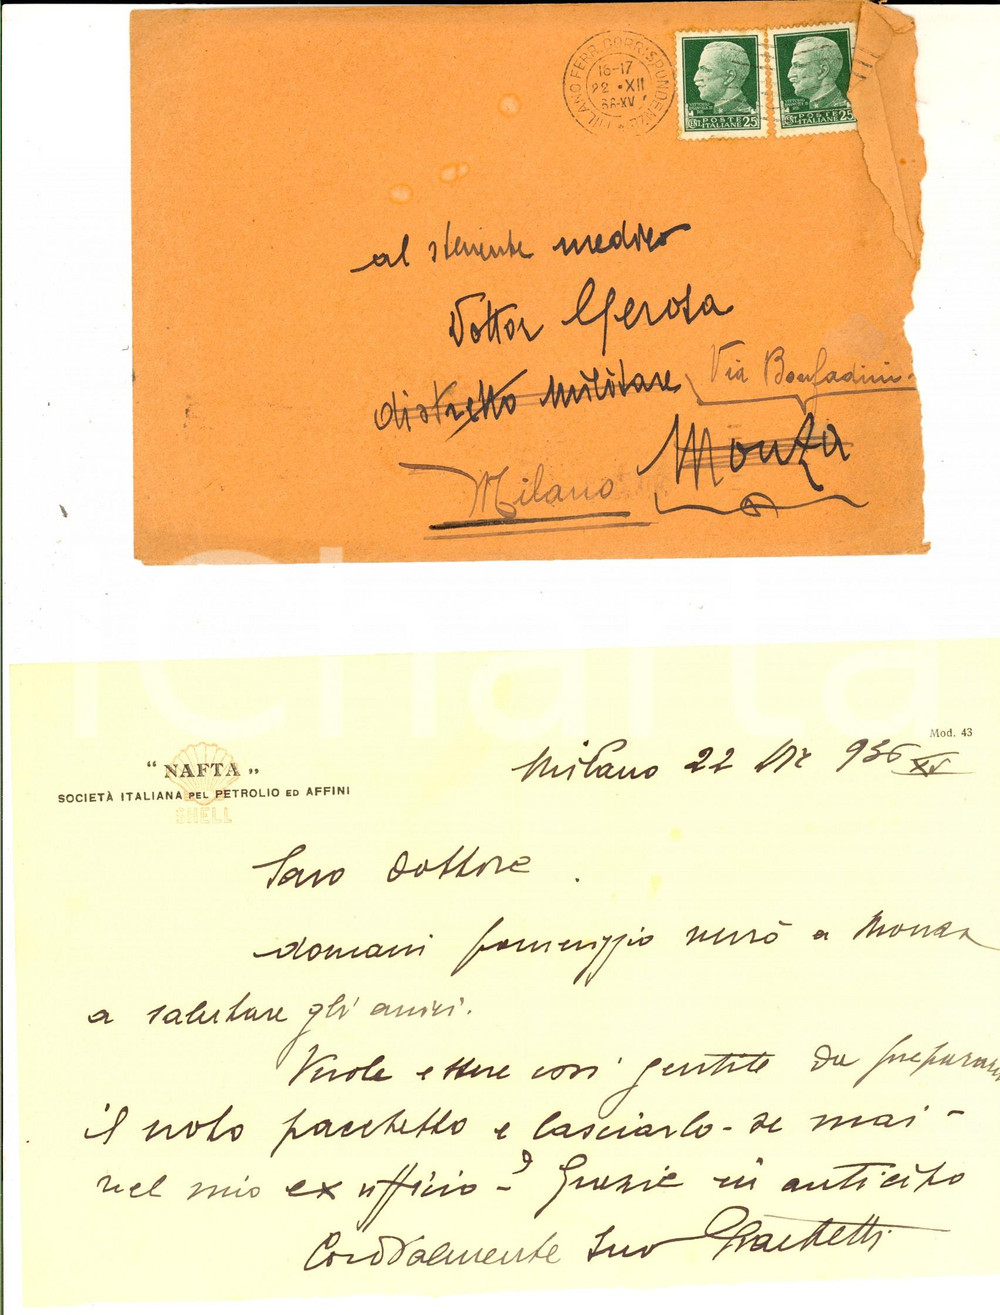 MILANO FERR. CORRISPONDENZE
16-17
22 · XII
36-XV
POSTE ITALIANE
CENT. 25
POSTE ITALIANE
CENT. 25
al tenente medico
Dottor Gerosa
distretto Militare
Via Bonfadini
Monza
Milano
iCharta
Mod. 43
"NAFTA"
SOCIETÀ ITALIANA PEL PETROLIO ED AFFINI
SHELL
Milano 22 Dic 936 XV
Caro dottore
domani pomeriggio verrò a Monza
a salutare gli amici.
Vuole essere così gentile da preparare
il noto pacchetto e lasciarlo - se mai -
nel mio ex ufficio - ? Grazie in anticipo
Cordialmente Suo